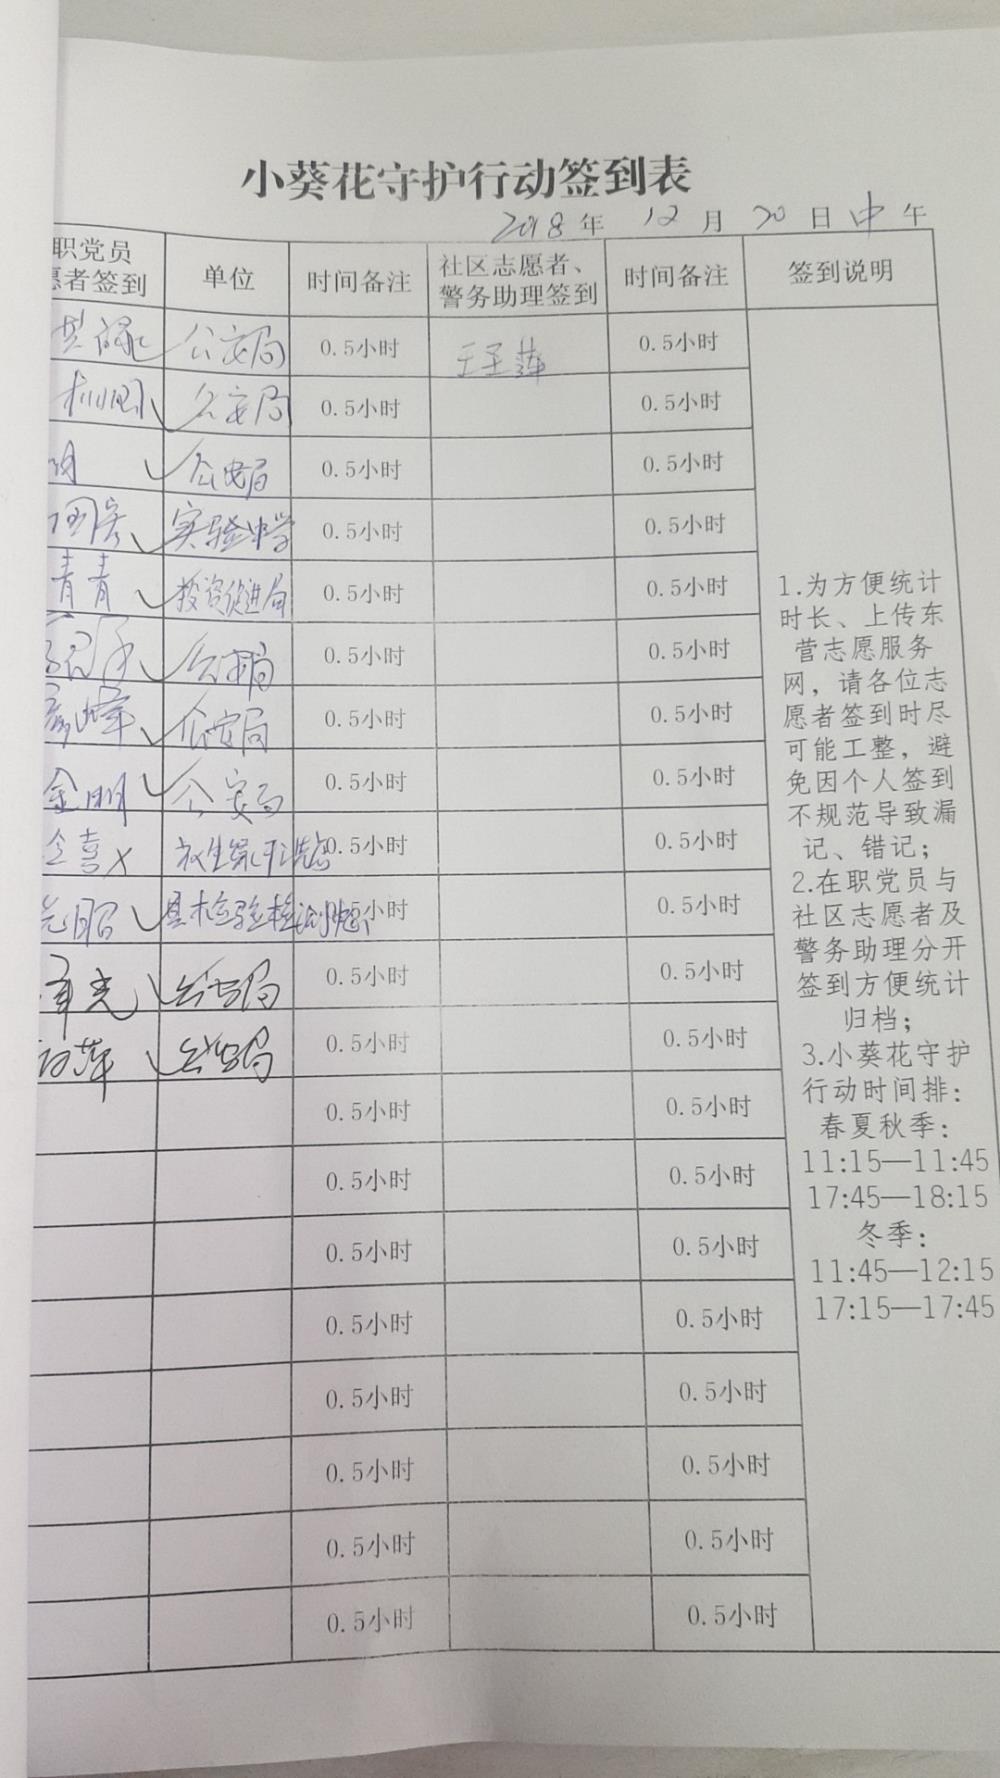 小葵花守护行动签到表
2018年 12月 日中午
职党员 单位 时间备注 社区志愿者、 时间备注 签到说明
愿者签到 警务助理签到
公安局 0.5小时 0.5小时
公安局 0.5小时 0.5小时
公安局 0.5小时 0.5小时
实验中学 0.5小时 0.5小时
青青 投资促进局 0.5小时 0.5小时
公安局 0.5小时 0.5小时
峰 公安局 0.5小时 0.5小时
金明 公安局 0.5小时 0.5小时
喜 0.5小时 0.5小时
检验检测 小时 0.5小时
公安局 0.5小时 0.5小时
萍 公安局 0.5小时 0.5小时
0.5小时 0.5小时
0.5小时 0.5小时
0.5小时 0.5小时
0.5小时 0.5小时
0.5小时 0.5小时
0.5小时 0.5小时
0.5小时 0.5小时
0.5小时 0.5小时
1.为方便统计
时长、上传东
营志愿服务
网，请各位志
愿者签到时尽
可能工整，避
免因个人签到
不规范导致漏
记、错记；
2.在职党员与
社区志愿者及
警务助理分开
签到方便统计
归档；
3.小葵花守护
行动时间排：
春夏秋季：
11:15—11:45
17:45—18:15
冬季：
11:45—12:15
17:15—17:45